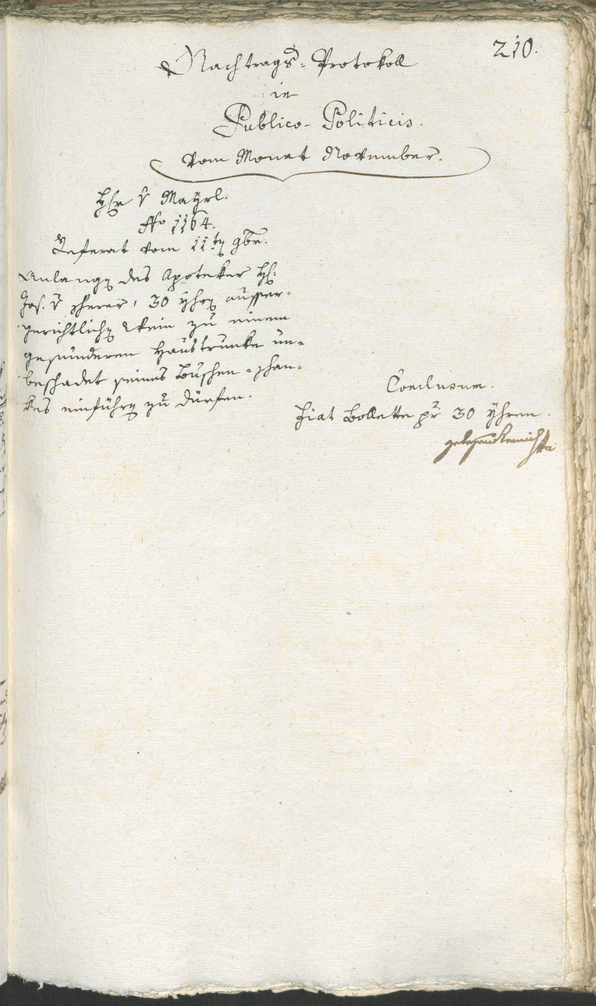 210.
Nachtrags-Protokoll
in
Publico-Politicis.
vom Monat November.
Hr v Mayrl.
No 1164.
Referat vom 11ten 9br.
Anlangen des Apoteker H:
Jos. v 30 Yhrn ausser-
gerichtlichen Wein zu einem
gesünderen Haustrunke un-
beschadet seines Buschen-schan-
kes einführen zu dürfen.
Conclusum.
Fiat Bollette pr 30 Yhren.